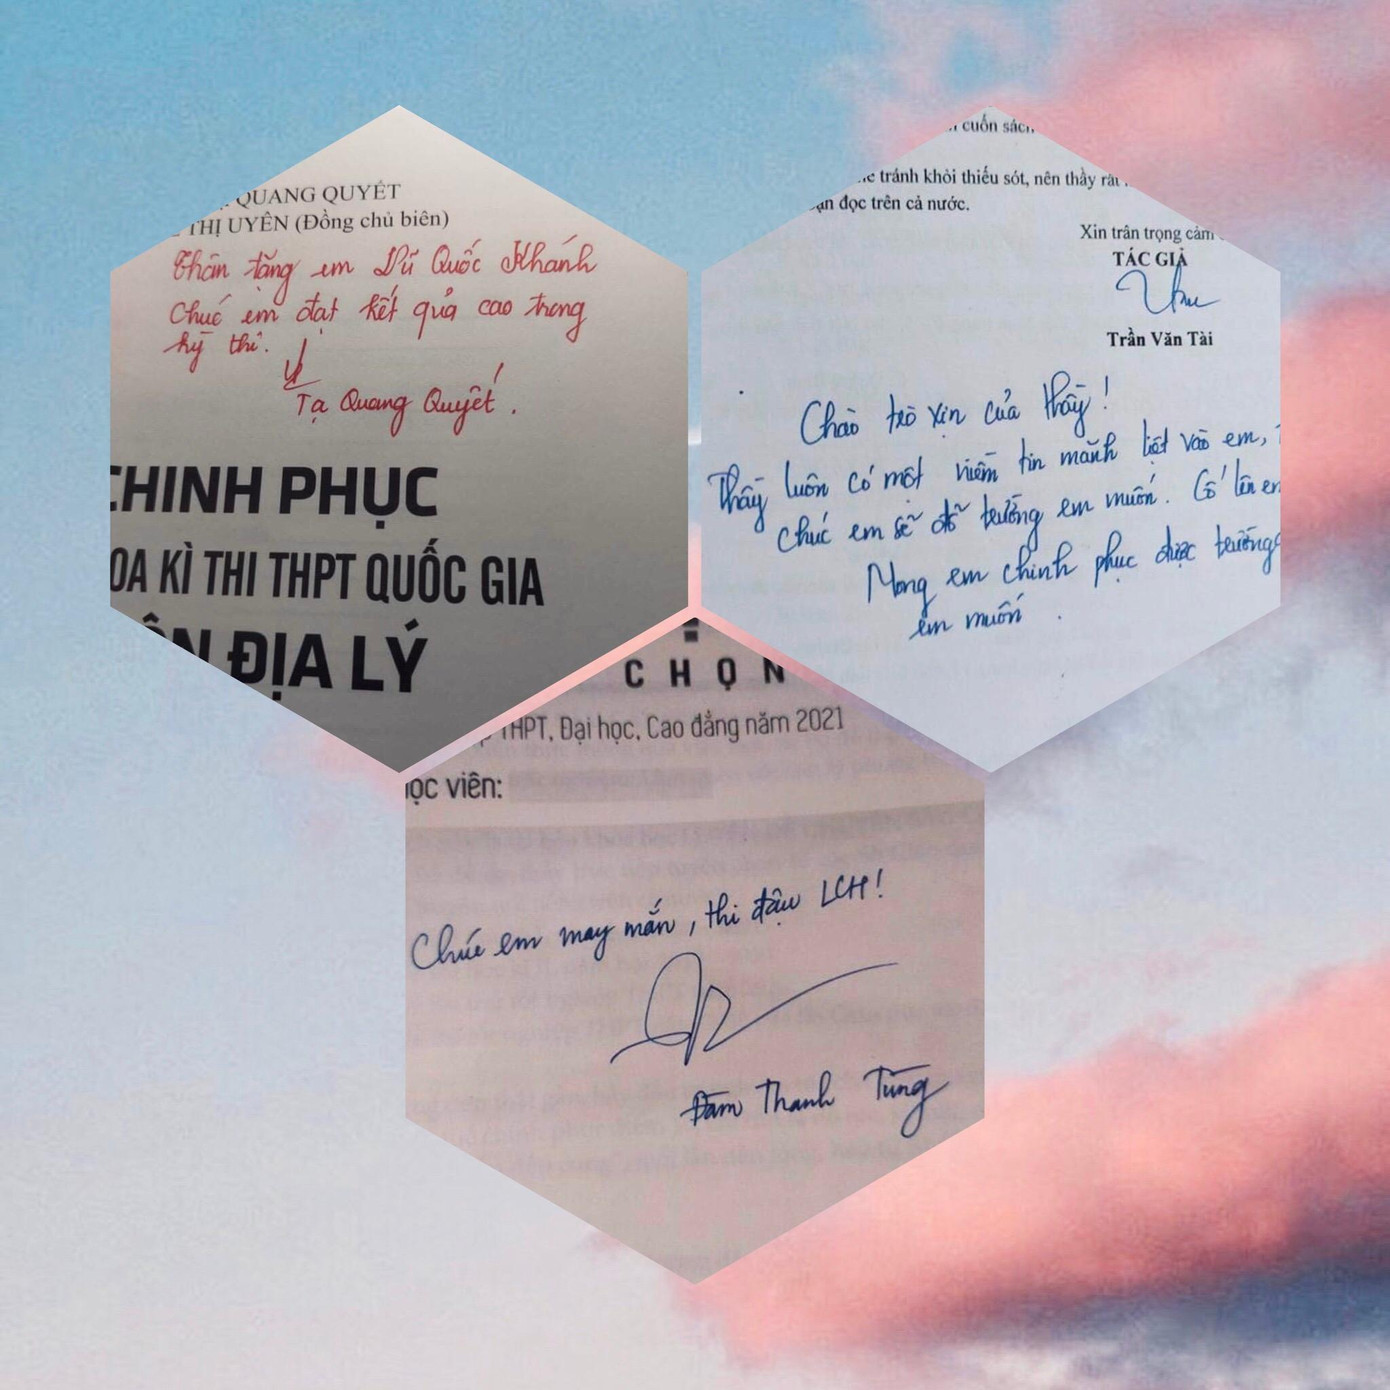 QUANG QUYẾT
THỊ UYÊN (Đồng chủ biên)
Thân tặng em Vũ Quốc Khánh
Chúc em đạt kết quả cao trong
kỳ thi.
Tạ Quang Quyết.
CHINH PHỤC
KÌ THI THPT QUỐC GIA
ĐỊA LÝ
cuốn sách
tránh khỏi thiếu sót, nên thầy rất
đọc trên cả nước.
Xin trân trọng cảm
TÁC GIẢ
Trần Văn Tài
Chào trò xịn của thầy!
Thầy luôn có một niềm tin mãnh liệt vào em,
chúc em sẽ đỗ trường em muốn. Cố lên em
Mong em chinh phục được trường
em muốn.
CHỌN
THPT, Đại học, Cao đẳng năm 2021
học viên:
Chúc em may mắn, thi đậu LCH!
Đàm Thanh Tùng